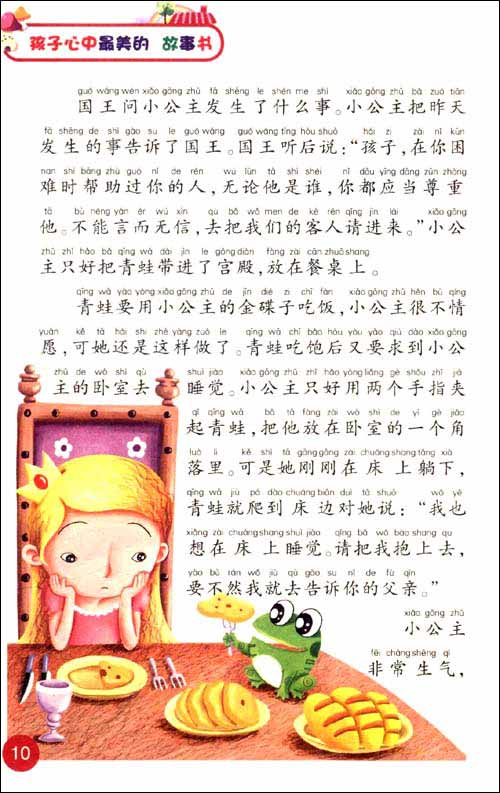 孩子心中最美的 故事书
guó wáng wèn xiǎo gōng zhǔ fā shēng le shén me shì xiǎo gōng zhǔ bǎ zuó tiān
国王问小公主发生了什么事。小公主把昨天
fā shēng de shì gào su le guó wáng guó wáng tīng hòu shuō hái zi zài nǐ kùn
发生的事告诉了国王。国王听后说:“孩子,在你困
nan shí bāng zhù guò nǐ de rén wú lùn tā shì shéi nǐ dōu yīng dāng zūn zhòng
难时帮助过你的人,无论他是谁,你都应当尊重
tā bù néng yán ér wú xìn qù bǎ wǒ men de kè rén qǐng jìn lái xiǎo gōng
他。不能言而无信,去把我们的客人请进来。”小公
zhǔ zhǐ hǎo bǎ qīng wā dài jìn le gōng diàn fàng zài cān zhuō shang
主只好把青蛙带进了宫殿,放在餐桌上。
qīng wā yào yòng xiǎo gōng zhǔ de jīn dié zi chī fàn xiǎo gōng zhǔ hěn bù qíng
青蛙要用小公主的金碟子吃饭,小公主很不情
yuàn kě tā hái shi zhè yàng zuò le qīng wā chī bǎo hòu yòu yāo qiú dào xiǎo gōng
愿,可她还是这样做了。青蛙吃饱后又要求到小公
zhǔ de wò shì qù shuì jiào xiǎo gōng zhǔ zhǐ hǎo yòng liǎng gè shǒu zhǐ jiā
主的卧室去 睡觉。小公主只好用两个手指夹
qǐ qīng wā bǎ tā fàng zài wò shì de yí gè jiǎo
起青蛙,把他放在卧室的一个角
luò li kě shì tā gāng gāng zài chuáng shang tǎng xià
落里。可是她刚刚在床 上躺下,
qīng wā jiù pá dào chuáng biān duì tā shuō wǒ yě
青蛙就爬到 床 边对她说:“我也
xiǎng zài chuáng shang shuì jiào qǐng bǎ wǒ bào shang qu
想在 床 上睡觉。请把我抱上去,
yào bù rán wǒ jiù qù gào su nǐ de fù qīn
要不然我就去告诉你的父亲。”
xiǎo gōng zhǔ
小公主
fēi cháng shēng qì
非常生气,
10